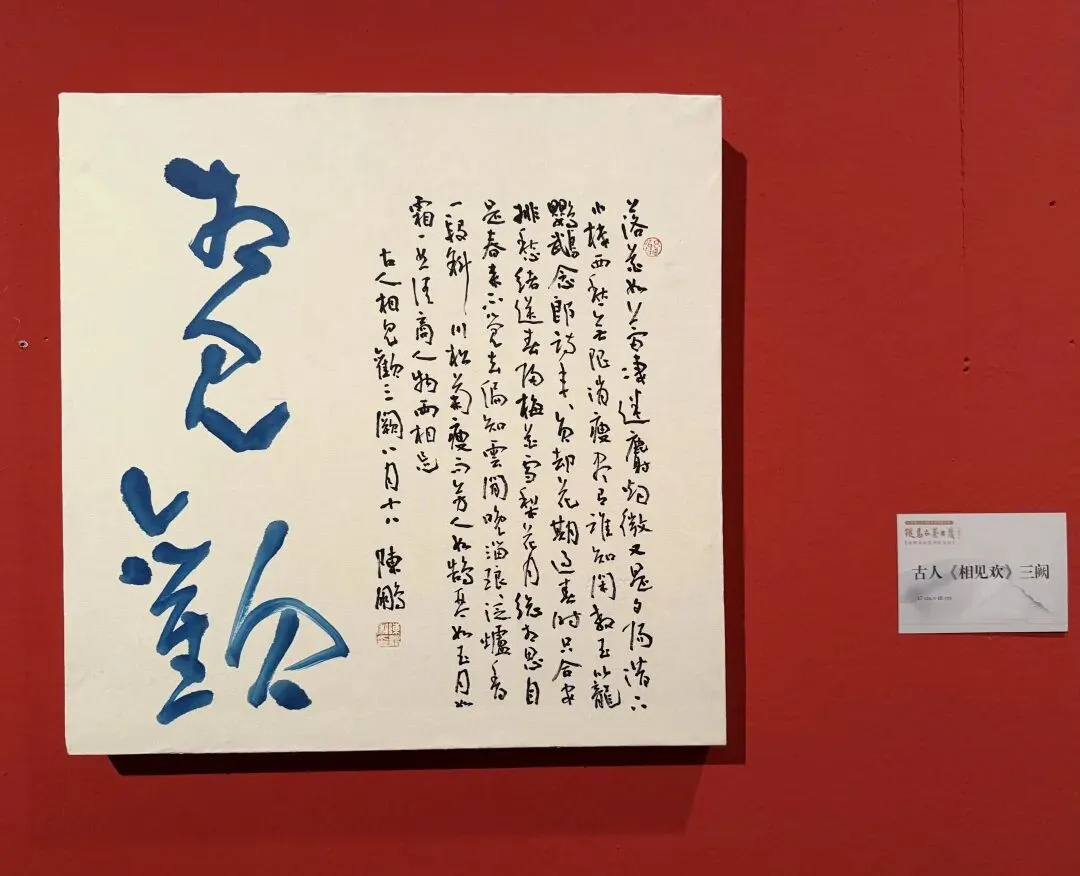 落花如夢凄迷麝烟微又是夕陽潛下
小樓西愁無限消瘦盡有誰知閑教玉籠
鸚鵡念郎詩年、負却花期過春時只合安
排愁緒送春歸梅花雪梨花月總相思自
是春來不覺去偏知雲閑晚溜琅、泛爐香
一段斜川松菊瘦而芳人如鵠琴如玉月如
霜一曲清商人物兩相忘
古人相見歡三闋八月十八 陳鵬
相見歡
古人《相见欢》三阕